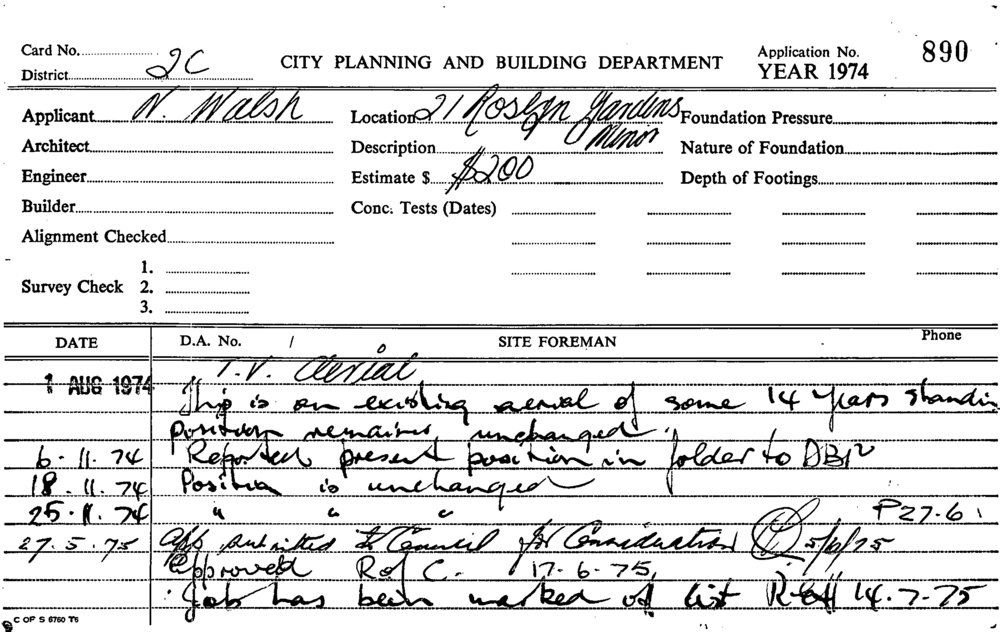 Card No.
District 2C
CITY PLANNING AND BUILDING DEPARTMENT
Application No. 890
YEAR 1974
Applicant N. Walsh
Location 21 Roslyn Gardens
Foundation Pressure
Architect
Description Minor
Nature of Foundation
Engineer
Estimate $ $200
Depth of Footings
Builder
Conc. Tests (Dates)
Alignment Checked
Survey Check
1.
2.
3.
DATE D.A. No. / SITE FOREMAN Phone
T.V. Aerial
1 AUG 1974
This is an existing aerial of some 14 years standin
position remains unchanged.
6.11.74 Reported present position in folder to
18.11.74 Position is unchanged
25.11.74 " " " P27.6
27.5.75 App submitted to Council for Consideration 5/6/75
Approved R of C. 17.6.75
Job has been marked of list 14.7.75
C OF S 6760 T6